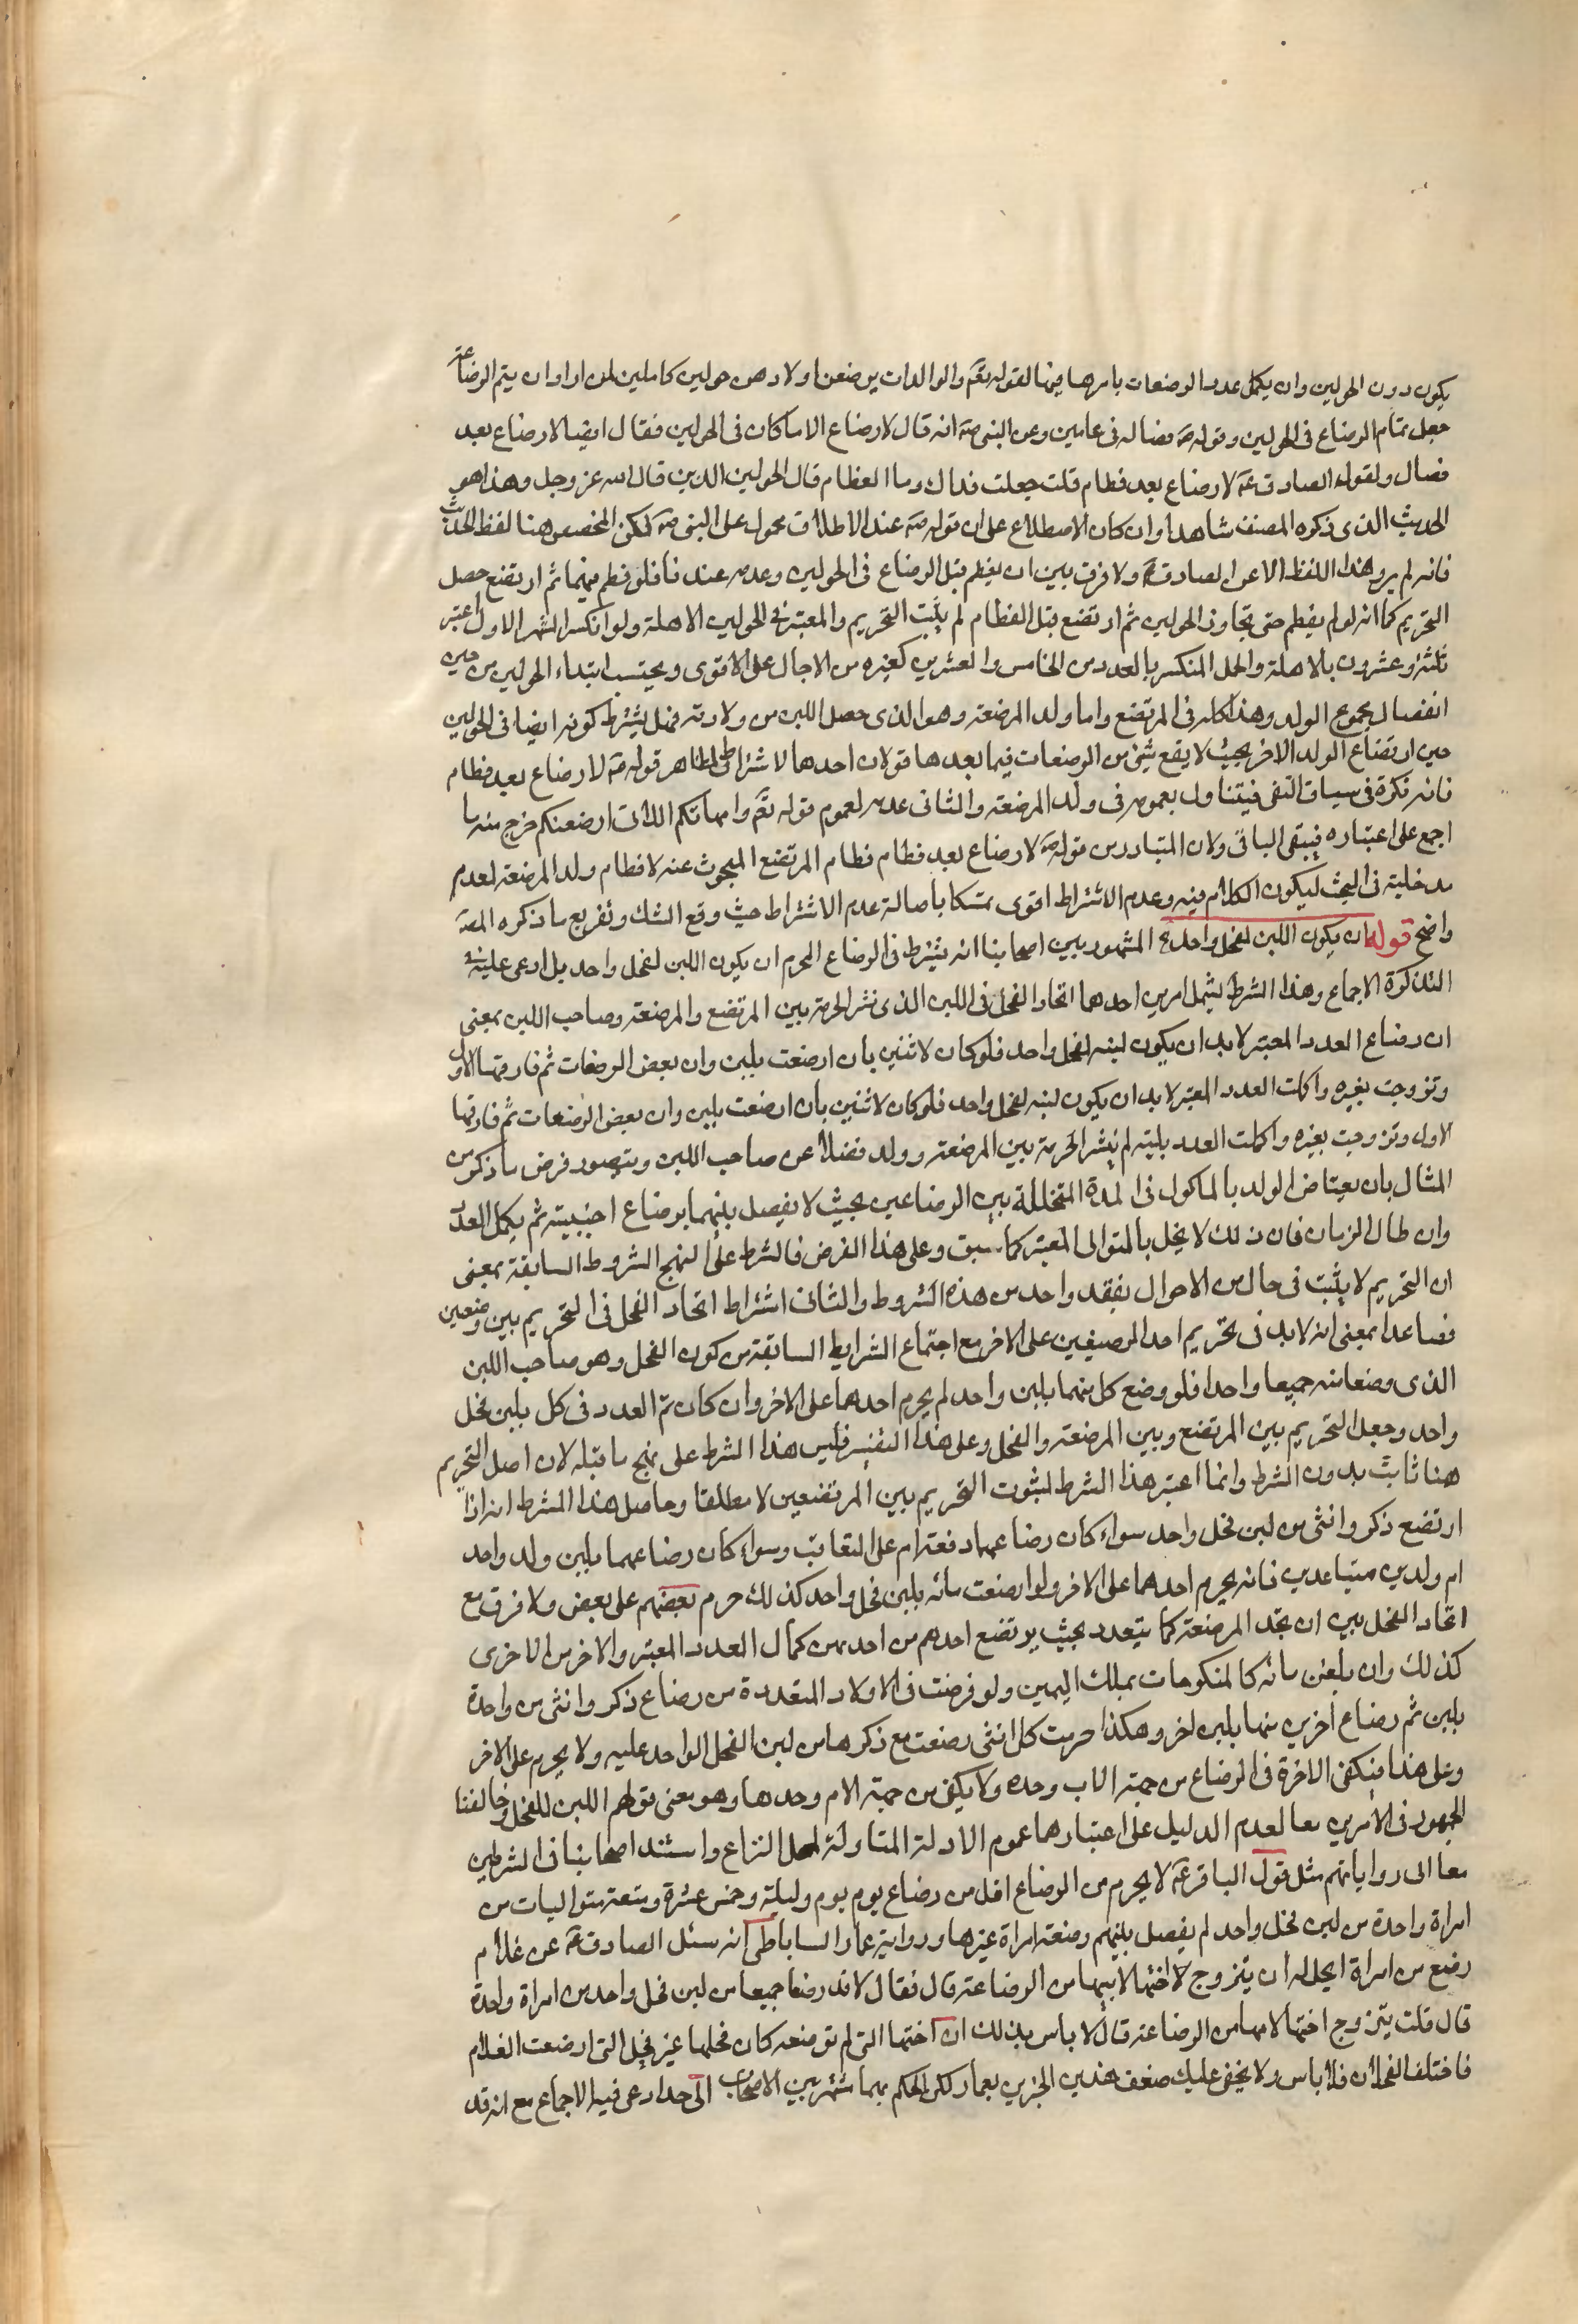 يكون دون الحولين وان يكمل عدد الرضعات باسرها فيها لقوله تعم والوالدات يرضعن اولادهن حولين كاملين لمن اراد ان يتم الرضاعة
جعل تمام الرضاع فى الحولين وقوله تعم فصاله فى عامين وعن النبى صه انه قال لا رضاع الا ما كان فى الحولين فقال ايضا لا رضاع بعد
فصال ولقول الصادق عه لا رضاع بعد فطام قلت جعلت فداك وما الفطام قال الحولين الذين قال الله عز وجل وهذا هو
الحديث الذى ذكره المصنف شاهدا وان كان الاصطلاح على ان قوله صه عند الاطلاق محمول على النبى صه لكن المخصص هنا لفظ الحديث
فانه لم يرو هذا اللفظ الا عن الصادق عه ولا فرق بين ان يفطم قبل الرضاع فى الحولين وعدمه عندنا فلو فطم فيهما ثم ارتضع حصل
التحريم كما انه لو لم يفطم حتى تجاوز الحولين ثم ارتضع قبل الفطام لم يثبت التحريم والمعتبر فى الحولين الاهلة ولو انكسر الشهر الاول اعتبر
ثلثة وعشرون بالاهلة واكمل المنكسر بالعدد من الخامس والعشرين كغيره من الاجال على الاقوى ويحتسب ابتداء الحولين من حين
انفصال مجموع الولد وهذا كله فى المرتضع واما ولد المرضعة وهو الذى حصل اللبن من ولادته فهل يشترط كونه ايضا فى الحولين
حين ارتضاع الولد الاخر بحيث لا يقع شئ من الرضعات فيما بعدها قولان احدهما الاشتراط لظاهر قوله صه لا رضاع بعد فطام
فانه نكرة فى سياق النفى فيتناول بعمومه فى ولد المرضعة والثانى عدمه لعموم قوله تعم وامهاتكم اللاتى ارضعنكم خرج منه ما
اجمع على اعتباره فيبقى الباقى ولان المتبادر من قوله صه لا رضاع بعد فطام فطام المرتضع المبحوث عنه لا فطام ولد المرضعة لعدم
مدخليته فى البحث ليكون الكلام فيه وعدم الاشتراط اقوى تمسكا باصالة عدم الاشتراط حيث وقع الشك وتفريع ما ذكره المصه
واضح قوله ان يكون اللبن لفحل واحد المشهور بين اصحابنا انه يشترط فى الرضاع المحرم ان يكون اللبن لفحل واحد بل ادعى عليه فى
التذكرة الاجماع وهذا الشرط يشمل امرين احدهما اتحاد الفحل فى اللبن الذى نشر الحرمة بين المرتضع والمرضعة وصاحب اللبن بمعنى
ان رضاع العدد المعتبر لابد ان يكون لبنه لفحل واحد فلو كان لاثنين بان ارضعت بلبن وان بعض الرضعات ثم فارقها الاول
وتزوجت بغيره واكلت العدد المعتبر لابد ان يكون لبنه لفحل واحد فلو كان لاثنين بان ارضعت بلبن وان بعض الرضعات ثم فارقها
الاول وتزوجت بغيره واكملت العدد بلبنه لم ينشر الحرمة بين المرضعة وولد فضلا عن صاحب اللبن ويتصور فرض ما ذكر من
المثال بان يعتاض الولد بالماكول فى المدة المتخللة بين الرضاعين بحيث لا يفصل بينهما برضاع اجنبية ثم يكمل العدد
وان طال الزمان فان ذلك لا يخل بالتوالى المعتبر كما سبق وعلى هذا الفرض فالشرط على نهج الشروط السابقة بمعنى
ان التحريم لا يثبت فى حال من الاحوال بفقد واحد من هذه الشروط والثانى اشتراط اتحاد الفحل فى التحريم بين رضعين
فصاعدا بمعنى انه لابد فى تحريم احد الرضيعين على الاخر مع اجتماع الشرايط السابقة من كون الفحل وهو صاحب اللبن
الذى رضعا منه جميعا واحدا فلو رضع كل منهما بلبن واحد لم يحرم احدهما على الاخر وان كان تم العدد فى كل بلبن فحل
واحد وجعل التحريم بين المرتضع وبين المرضعة والفحل وعلى هذا التفسير فليس هذا الشرط على نهج ما قبله لان اصل التحريم
هنا ثابت بدون الشرط وانما اعتبر هذا الشرط لثبوت التحريم بين المرتضعين لا مطلقا وحاصل هذا الشرط انه اذا
ارتضع ذكر وانثى من لبن فحل واحد سواء كان رضاعهما دفعة ام على التعاقب وسواء كان رضاعهما بلبن ولد واحد
ام ولدين متباعدين فانه يحرم احدهما على الاخر ولو ارضعت مائة بلبن فحل واحد كذلك حرم بعضهم على بعض ولا فرق مع
اتحاد الفحل بين ان تتحد المرضعة كما يتعدد بحيث يرتضع احدهم من احديهن كمال العدد المعتبر والاخر من الاخرى
كذلك وان بلغن مائة كالمنكوحات بملك اليمين ولو فرضت فى الاولاد المتعددة من رضاع ذكر وانثى من واحدة
بلبن ثم رضاع اخرين منها بلبن اخر وهكذا حرمت كل انثى رضعت مع ذكرها من لبن الفحل الواحد عليه ولا يحرم على الاخر
وعلى هذا فيكفى الاخوة فى الرضاع من جهة الاب وحده ولا يكفى من جهة الام وحدها وهو معنى قولهم اللبن للفحل وخالفنا
الجمهور فى الامرين معا لعدم الدليل على اعتبارها عموم الادلة المتناولة لمحل النزاع واستند اصحابنا فى الشرطين
معا الى رواياتهم مثل قول الباقر عه لا يحرم من الرضاع اقل من رضاع يوم يوم وليلة وخمس عشرة رضعة متواليات من
امراة واحدة من لبن فحل واحد لم يفصل بينهم رضعة امراة غيرها ورواية عمار الساباطى انه سئل الصادق عه عن غلام
رضع من امراة ايحل له ان يتزوج لاختها لابيها من الرضاعة قال فقال لا قد رضعا جميعا من لبن فحل واحد من امراة واحدة
قال قلت يتزوج اختها لامها من الرضاعة قال لا باس بذلك ان اختها التى لم ترضعه كان فحلها غير فحل التى ارضعت الغلام
فاختلف الفحلان فلا باس ولا يخفى عليك ضعف هذين الخبرين بعمار لكن الحكم بهما شتهر بين الاصحاب الى حد ادعى فيه الاجماع مع انه قد